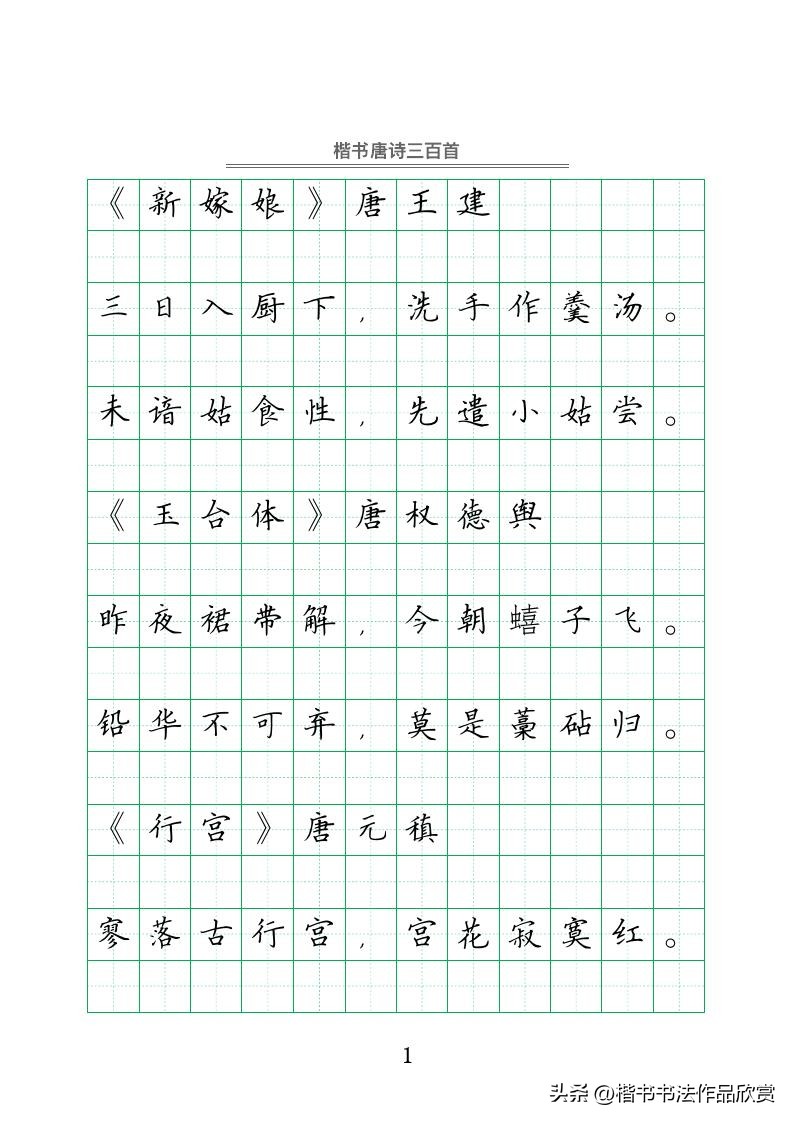 楷书唐诗三百首
《新嫁娘》唐王建
三日入厨下，洗手作羹汤。
未谙姑食性，先遣小姑尝。
《玉台体》唐权德舆
昨夜裙带解，今朝蟢子飞。
铅华不可弃，莫是藁砧归。
《行宫》唐元稹
寥落古行宫，宫花寂寞红。
1
头条 @楷书书法作品欣赏